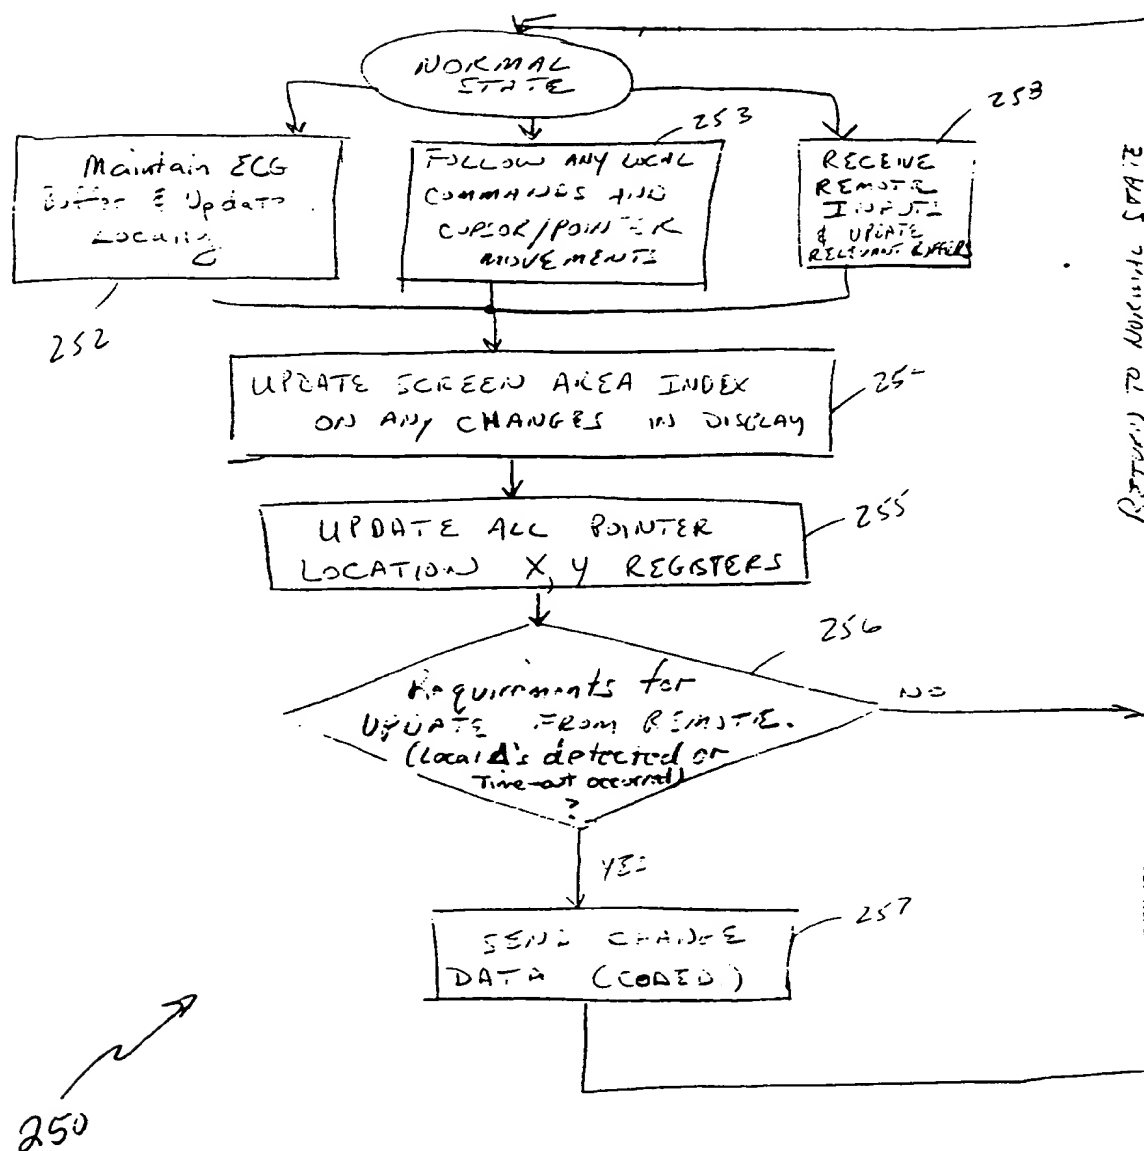 NORMAL
STATE
253
253
Maintain ECG
Buffer & Update
Locally
FOLLOW ANY LOCAL
COMMANDS AND
CURSOR/POINTER
MOVEMENTS
RECEIVE
REMOTE
INPUTS
& UPDATE
RELEVANT BUFFERS
252
RETURN TO NORMAL STATE
UPDATE SCREEN AREA INDEX
ON ANY CHANGES IN DISPLAY
UPDATE ALL POINTER
LOCATION X, Y REGISTERS
255
256
Requirements for
UPDATE FROM REMOTE.
(Local Δ's detected or
Time-out occurred)
?
NO
YES
SEND CHANGE
DATA (CODED)
257
250